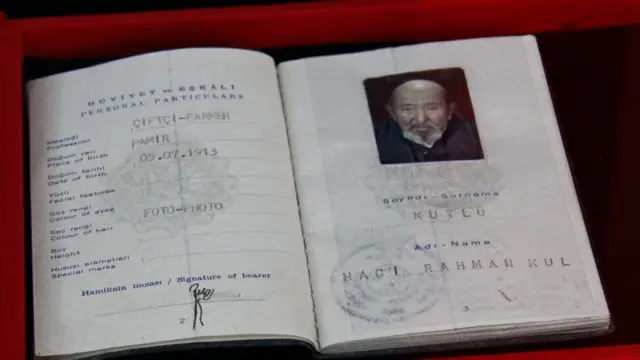 HÜVİYET ve EŞKÂLİ
PERSONAL PARTICULARS
Mesleği
Profession
ÇİFTÇİ-FARMER
Doğum yeri
Place of birth
PAMİR
Doğum tarihi
Date of birth
09.07.1913
Yüzü
Facial features
Göz rengi
Colour of eyes
FOTO-PHOTO
Saç rengi
Colour of hair
Boy
Height
Hususi alametleri
Special marks
Hamilinin imzası / Signature of bearer
2
Soyadı-Surname
KUTLU
Adı-Name
HACI RAHMAN KUL
3